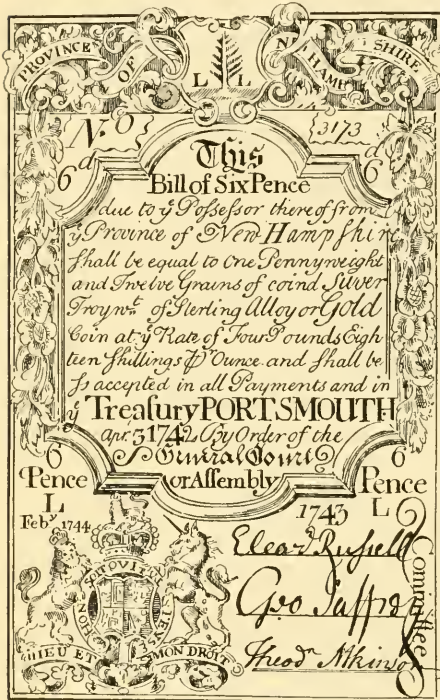 PROVINCE OF NEW HAMPSHIRE
L L
No. 0 3173
6d 6d
This
Bill of Six Pence
due to ye Possessor thereof from
ye Province of New Hampshir
shall be equal to One Pennyweight
and Twelve Grains of coind Silver
Troy wt. of Sterling Alloy or Gold
Coin at ye Rate of Four Pounds Eigh
teen Shillings ⅌ Ounce and shall be
so accepted in all Payments and in
ye Treasury PORTSMOUTH
Apr. 3 1742 By Order of the
General Court
or Assembly
6 Pence L
6 Pence L
Feby. 1744
1743
HONI SOIT QUI MAL Y PENSE
DIEU ET MON DROIT
Eleazr. Russell
Geo Jaffrey
Theodr. Atkinson
Committee